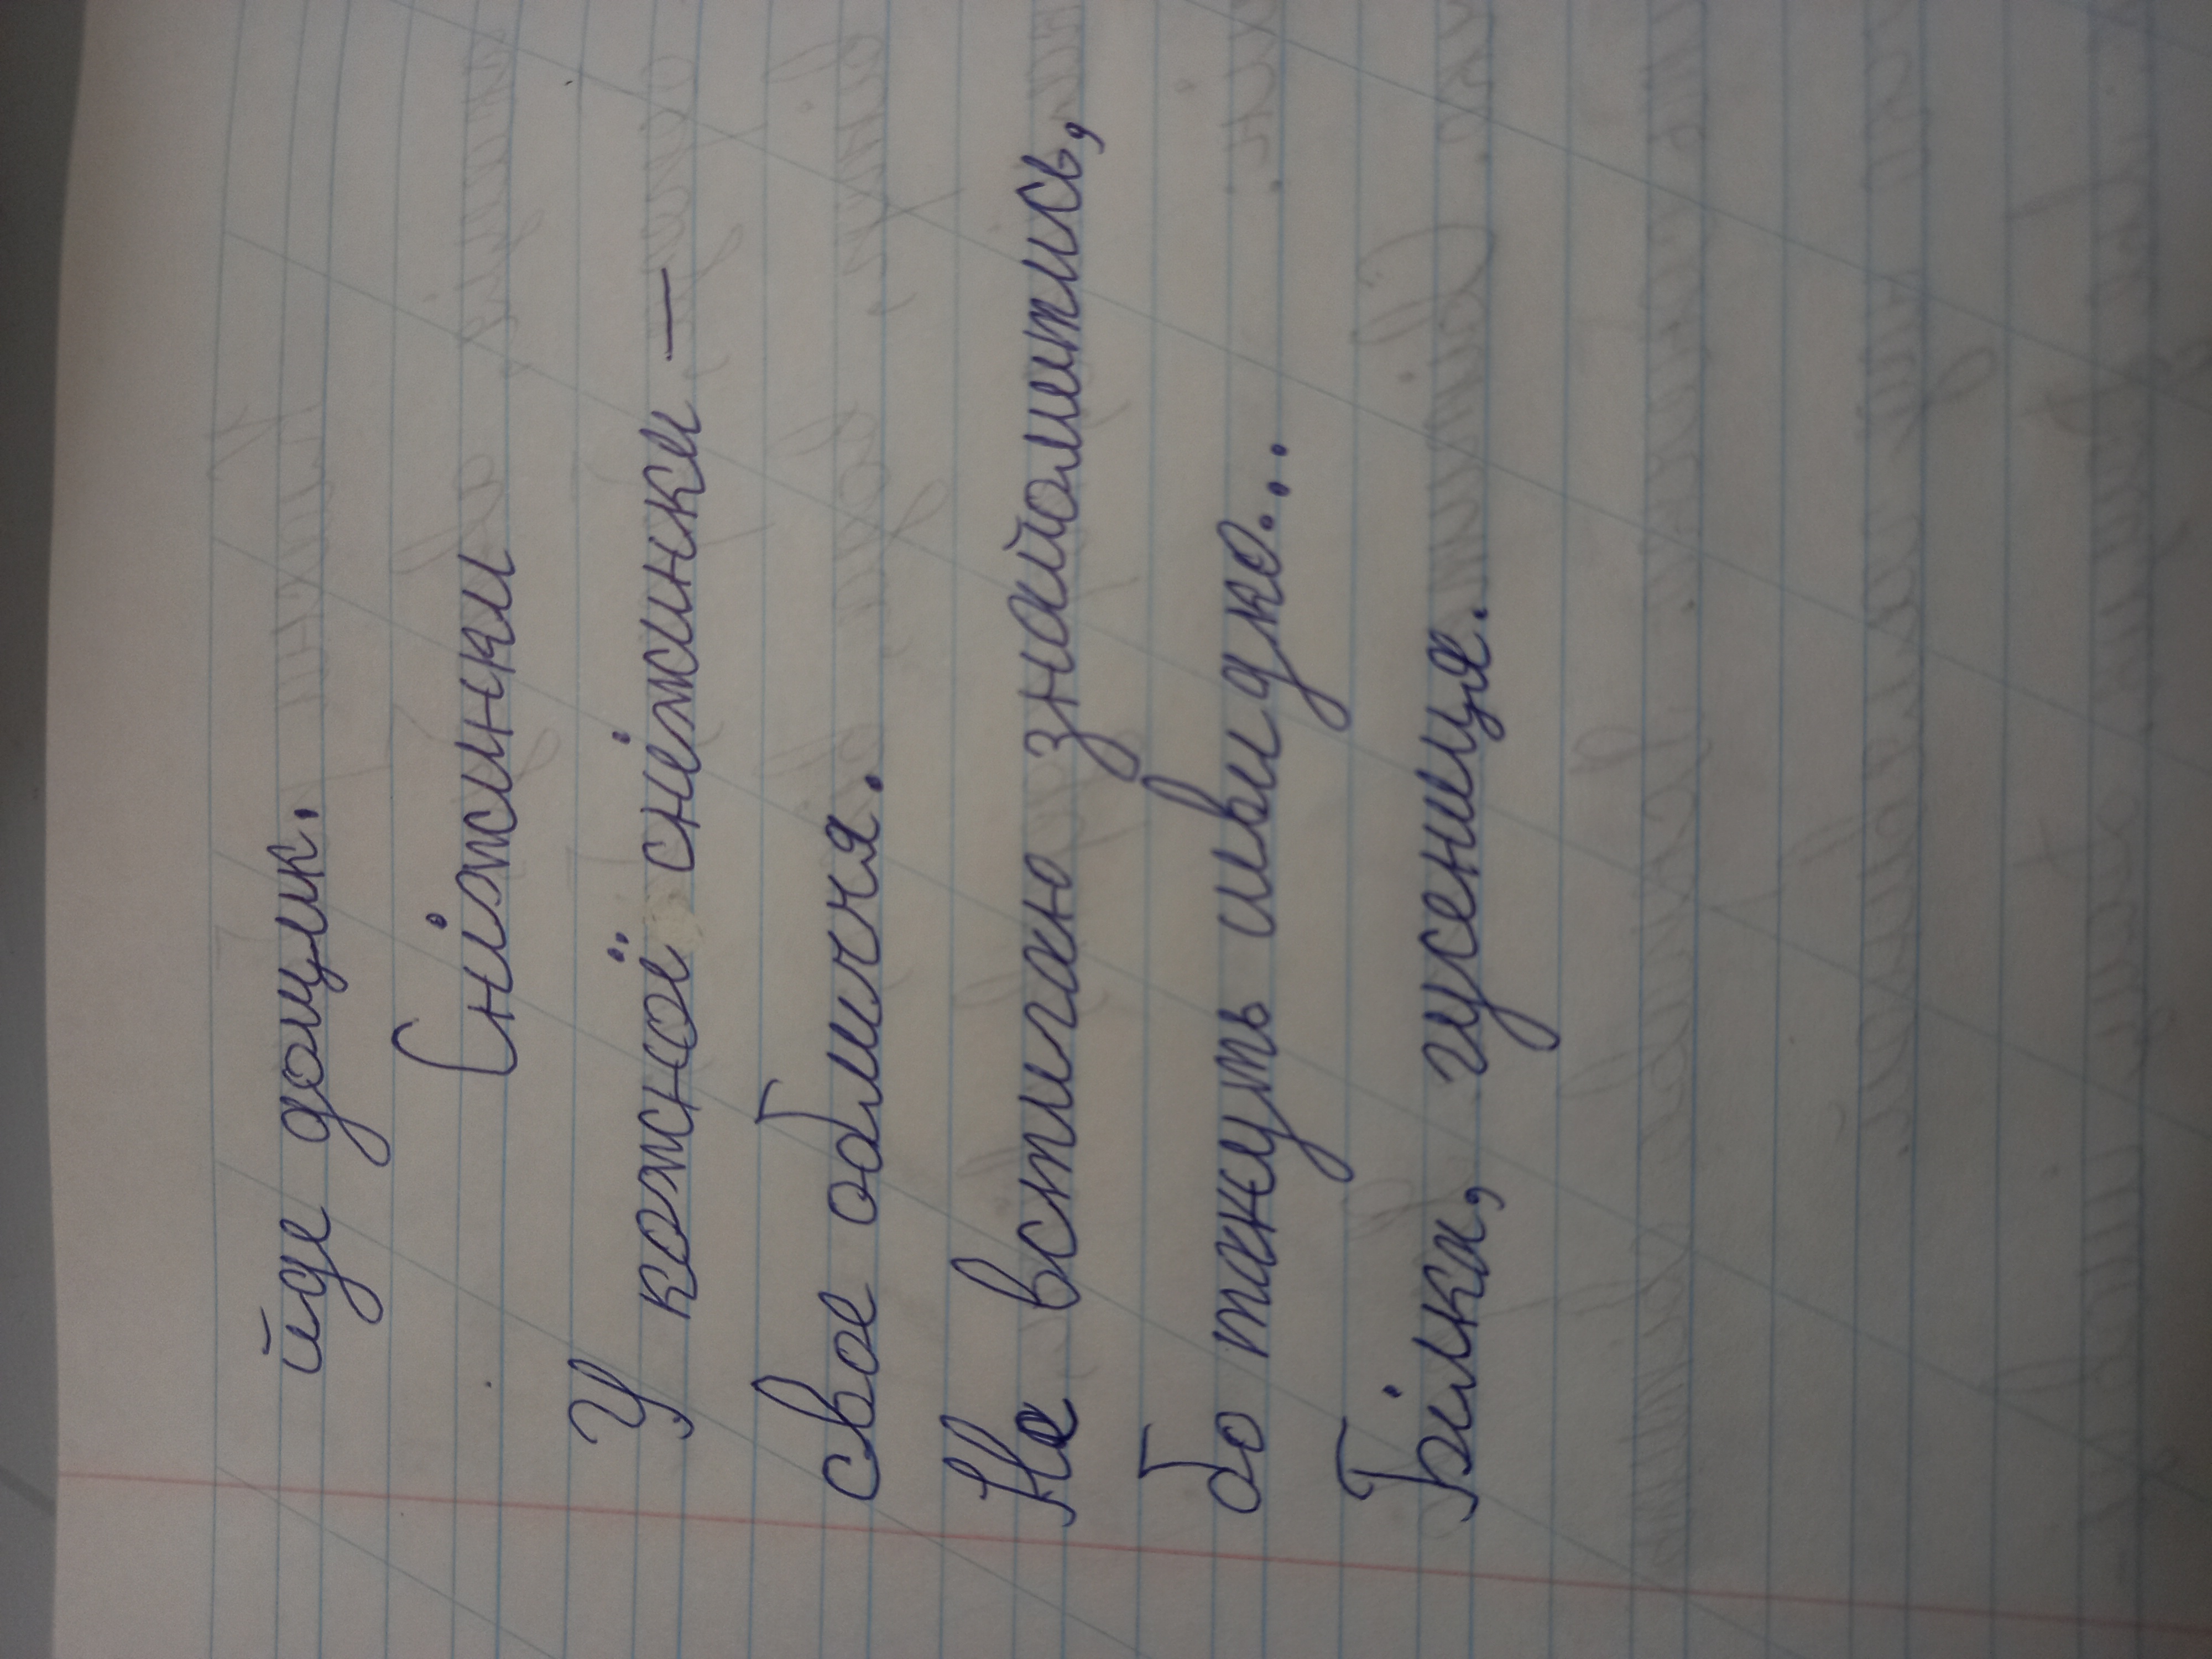 йде дощик.
Сніжинки
У кожної сніжинки –
своє обличчя.
Не встигаю знайомитись,
бо тануть швидко...
Білка, гусениця.